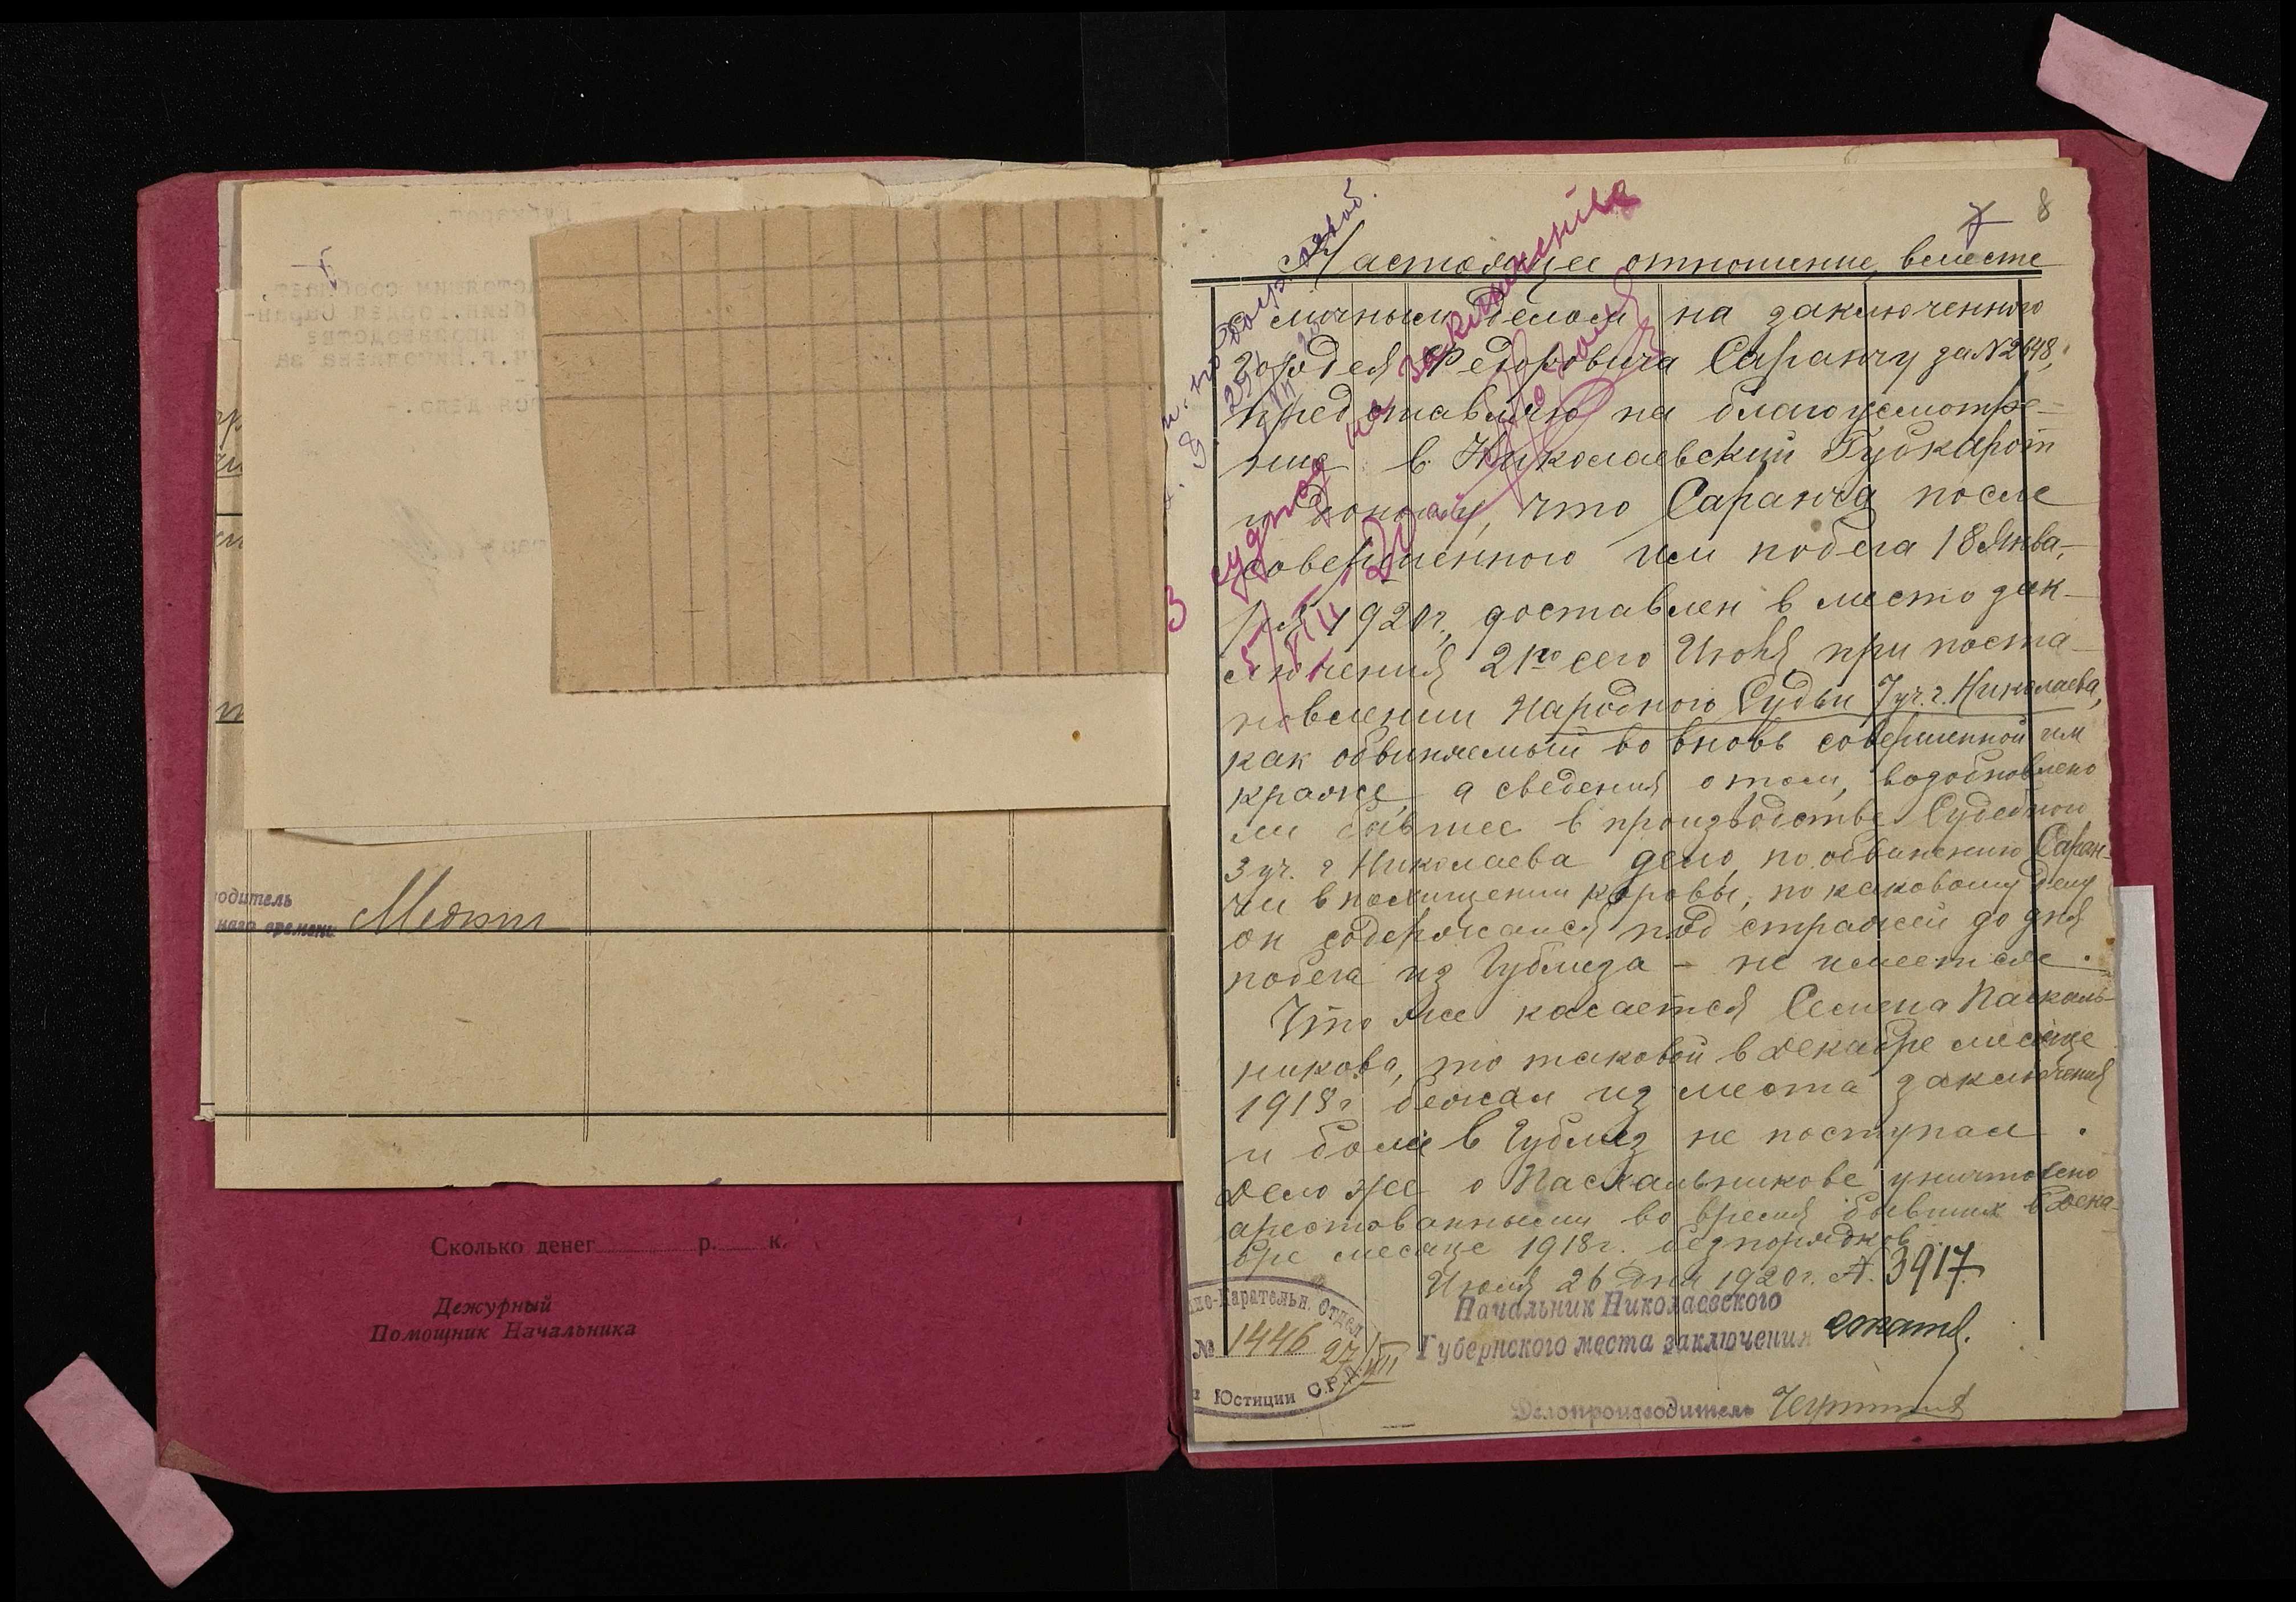 одитель
наго времени
Сколько денег р. к.
Дежурный
Помощник Начальника
8
Настоящее отношение вместе
с личным делом на заключенного
Гордея Федоровича Саранчу за №2648,
представляю на благоусмотре-
ние в Николаевский Губкарот
и доношу, что Саранча после
совершенного им побега 18 Янва-
ря 1920г, доставлен в место зак-
лючения 21го сего Июля при поста-
новлении Народного Судьи 7 уч. г. Николаева,
как обвиняемый во вновь совершенной им
краже, а сведения о том, возобновлено
ли бывшее в производстве Судебного
3 уч. г Николаева дело по обвинению Саран-
чи в похищении коровы, по каковому делу
он содержался под стражей до дня
побега из Губмеза - не имеется.
Что же касается Семена Паскаль-
никова, то таковой в Декабре месяце
1918г бежал из места заключения
и более в Губмез не поступал.
Дело же о Паскальникове уничтожено
арестованными во время бывших в Дека-
бре месяце 1918г. безпорядков
Июля 26 дня 1920г. №. 3917
Начальник Николаевского
Губернского места заключения
Карательн. Отдел
№ 1446 27/VII
Юстиции
Делопроизводитель
З судмед на заключенiв